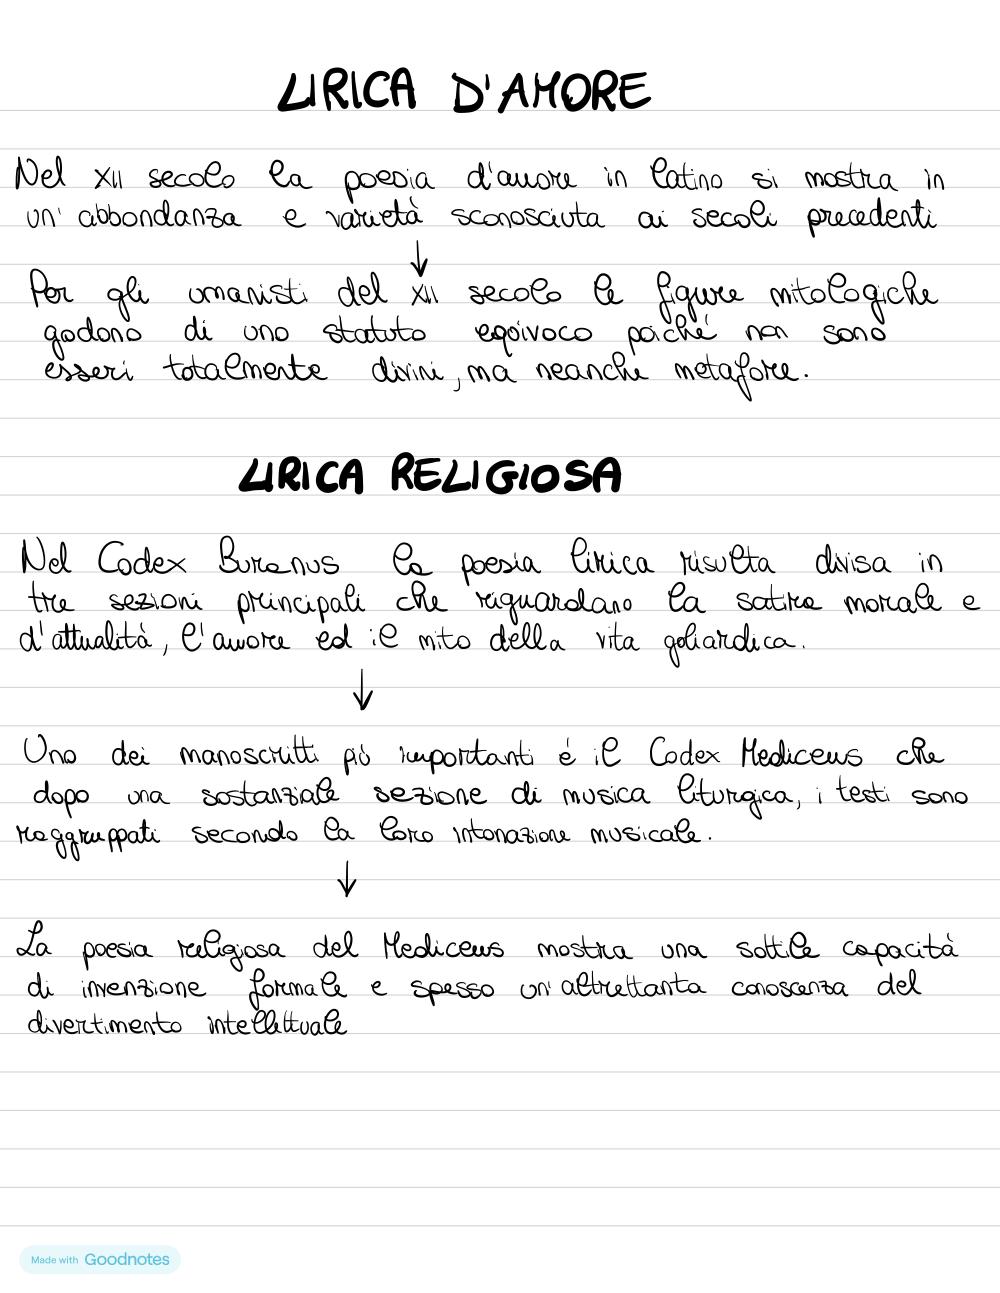 LIRICA D'AMORE
Nel XII secolo la poesia d'amore in latino si mostra in
un'abbondanza e varietà sconosciuta ai secoli precedenti
↓
Per gli umanisti del XII secolo le figure mitologiche
godono di uno statuto equivoco poiché non sono
esseri totalmente divini, ma neanche metafore.
LIRICA RELIGIOSA
Nel Codex Buranus la poesia lirica risulta divisa in
tre sezioni principali che riguardano la satira morale e
d'attualità, l'amore ed il mito della vita goliardica.
↓
Uno dei manoscritti più importanti é il Codex Mediceus che
dopo una sostanziale sezione di musica liturgica, i testi sono
raggruppati secondo la loro intonazione musicale.
↓
La poesia religiosa del Mediceus mostra una sottile capacità
di invenzione formale e spesso un'altrettanta conoscenza del
divertimento intellettuale
Made with Goodnotes